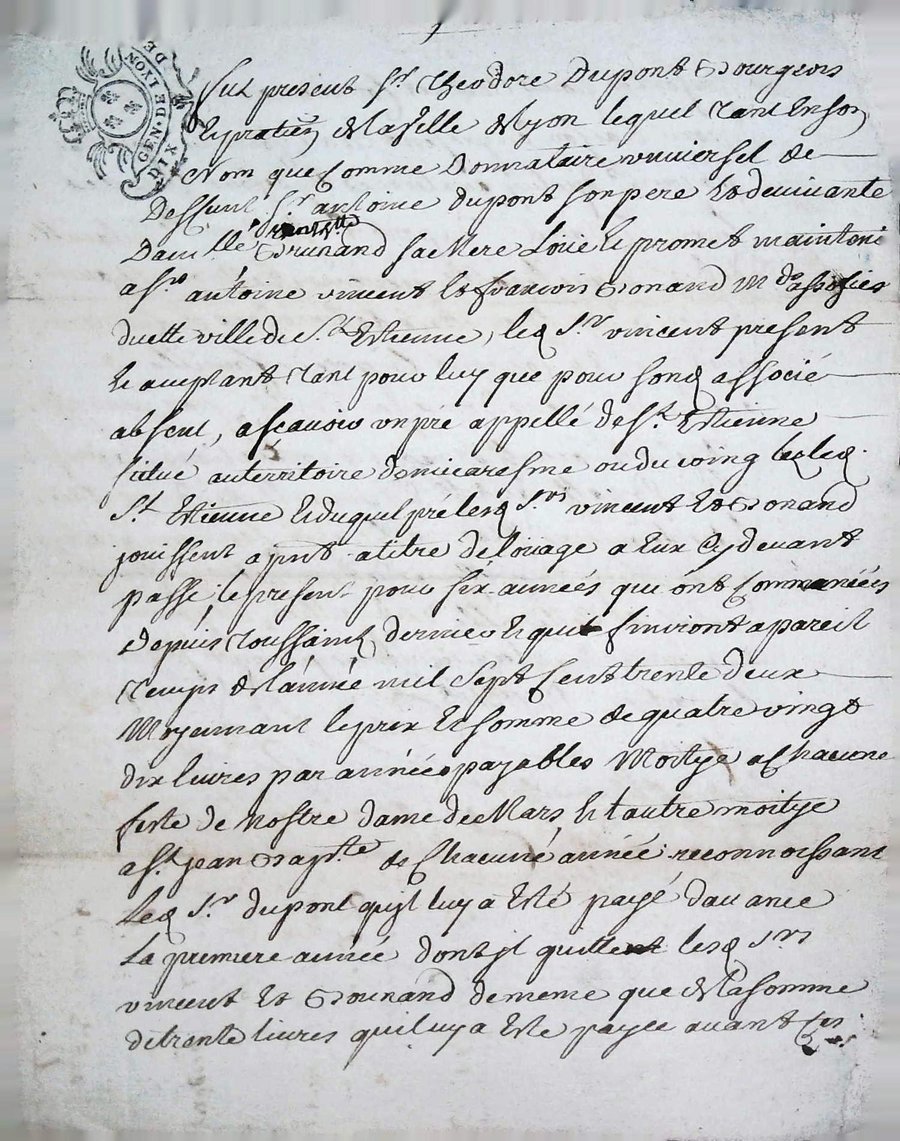 GEN. DE LYON
DIX
DE
Fut present Sr. Theodore Dupont Bourgeois
Et praticien de la ville de Lyon lequel tant En son
Nom que Comme Donnataire universel de
Deffunt Sr. antoine dupont son pere Et de vivante
Damlle Brunand sa Mere Loüe Et promet maintenir
a srs antoine vincent Et françois Bonand Mds associes
de cette ville de St. Etienne, led Sr. vincent present
Et acceptant tant pour luy que pour sond associé
absent, a scavoir un pré appellé de St. Etienne
situé au territoire de micaresme ou du coing lez led.
St. Etienne Et duquel pré lesd Srs vincent Et Bonand
jouissent a pnt a titre de loüage a Eux Cy devant
passé, le present pour six années que ont Commancées
Depuis toussainct dernier Et qui finiront a pareil
temps de l'année mil sept Cent trente deux
Moyennant le prix Et somme de quatre vingt
dix livres par année payables Moitye a Chacune
feste de Nostre dame de Mars Et l'autre moitye
a St. jean Bapte de Chacune année reconnoissant
Led Sr. dupont qu'jl luy a Esté payé d'avance
La premiere année dont jl quitte lesd Srs
vincent Et Bonand de meme que de la somme
de trente livres qu'il luy a Esté payée avant Ces